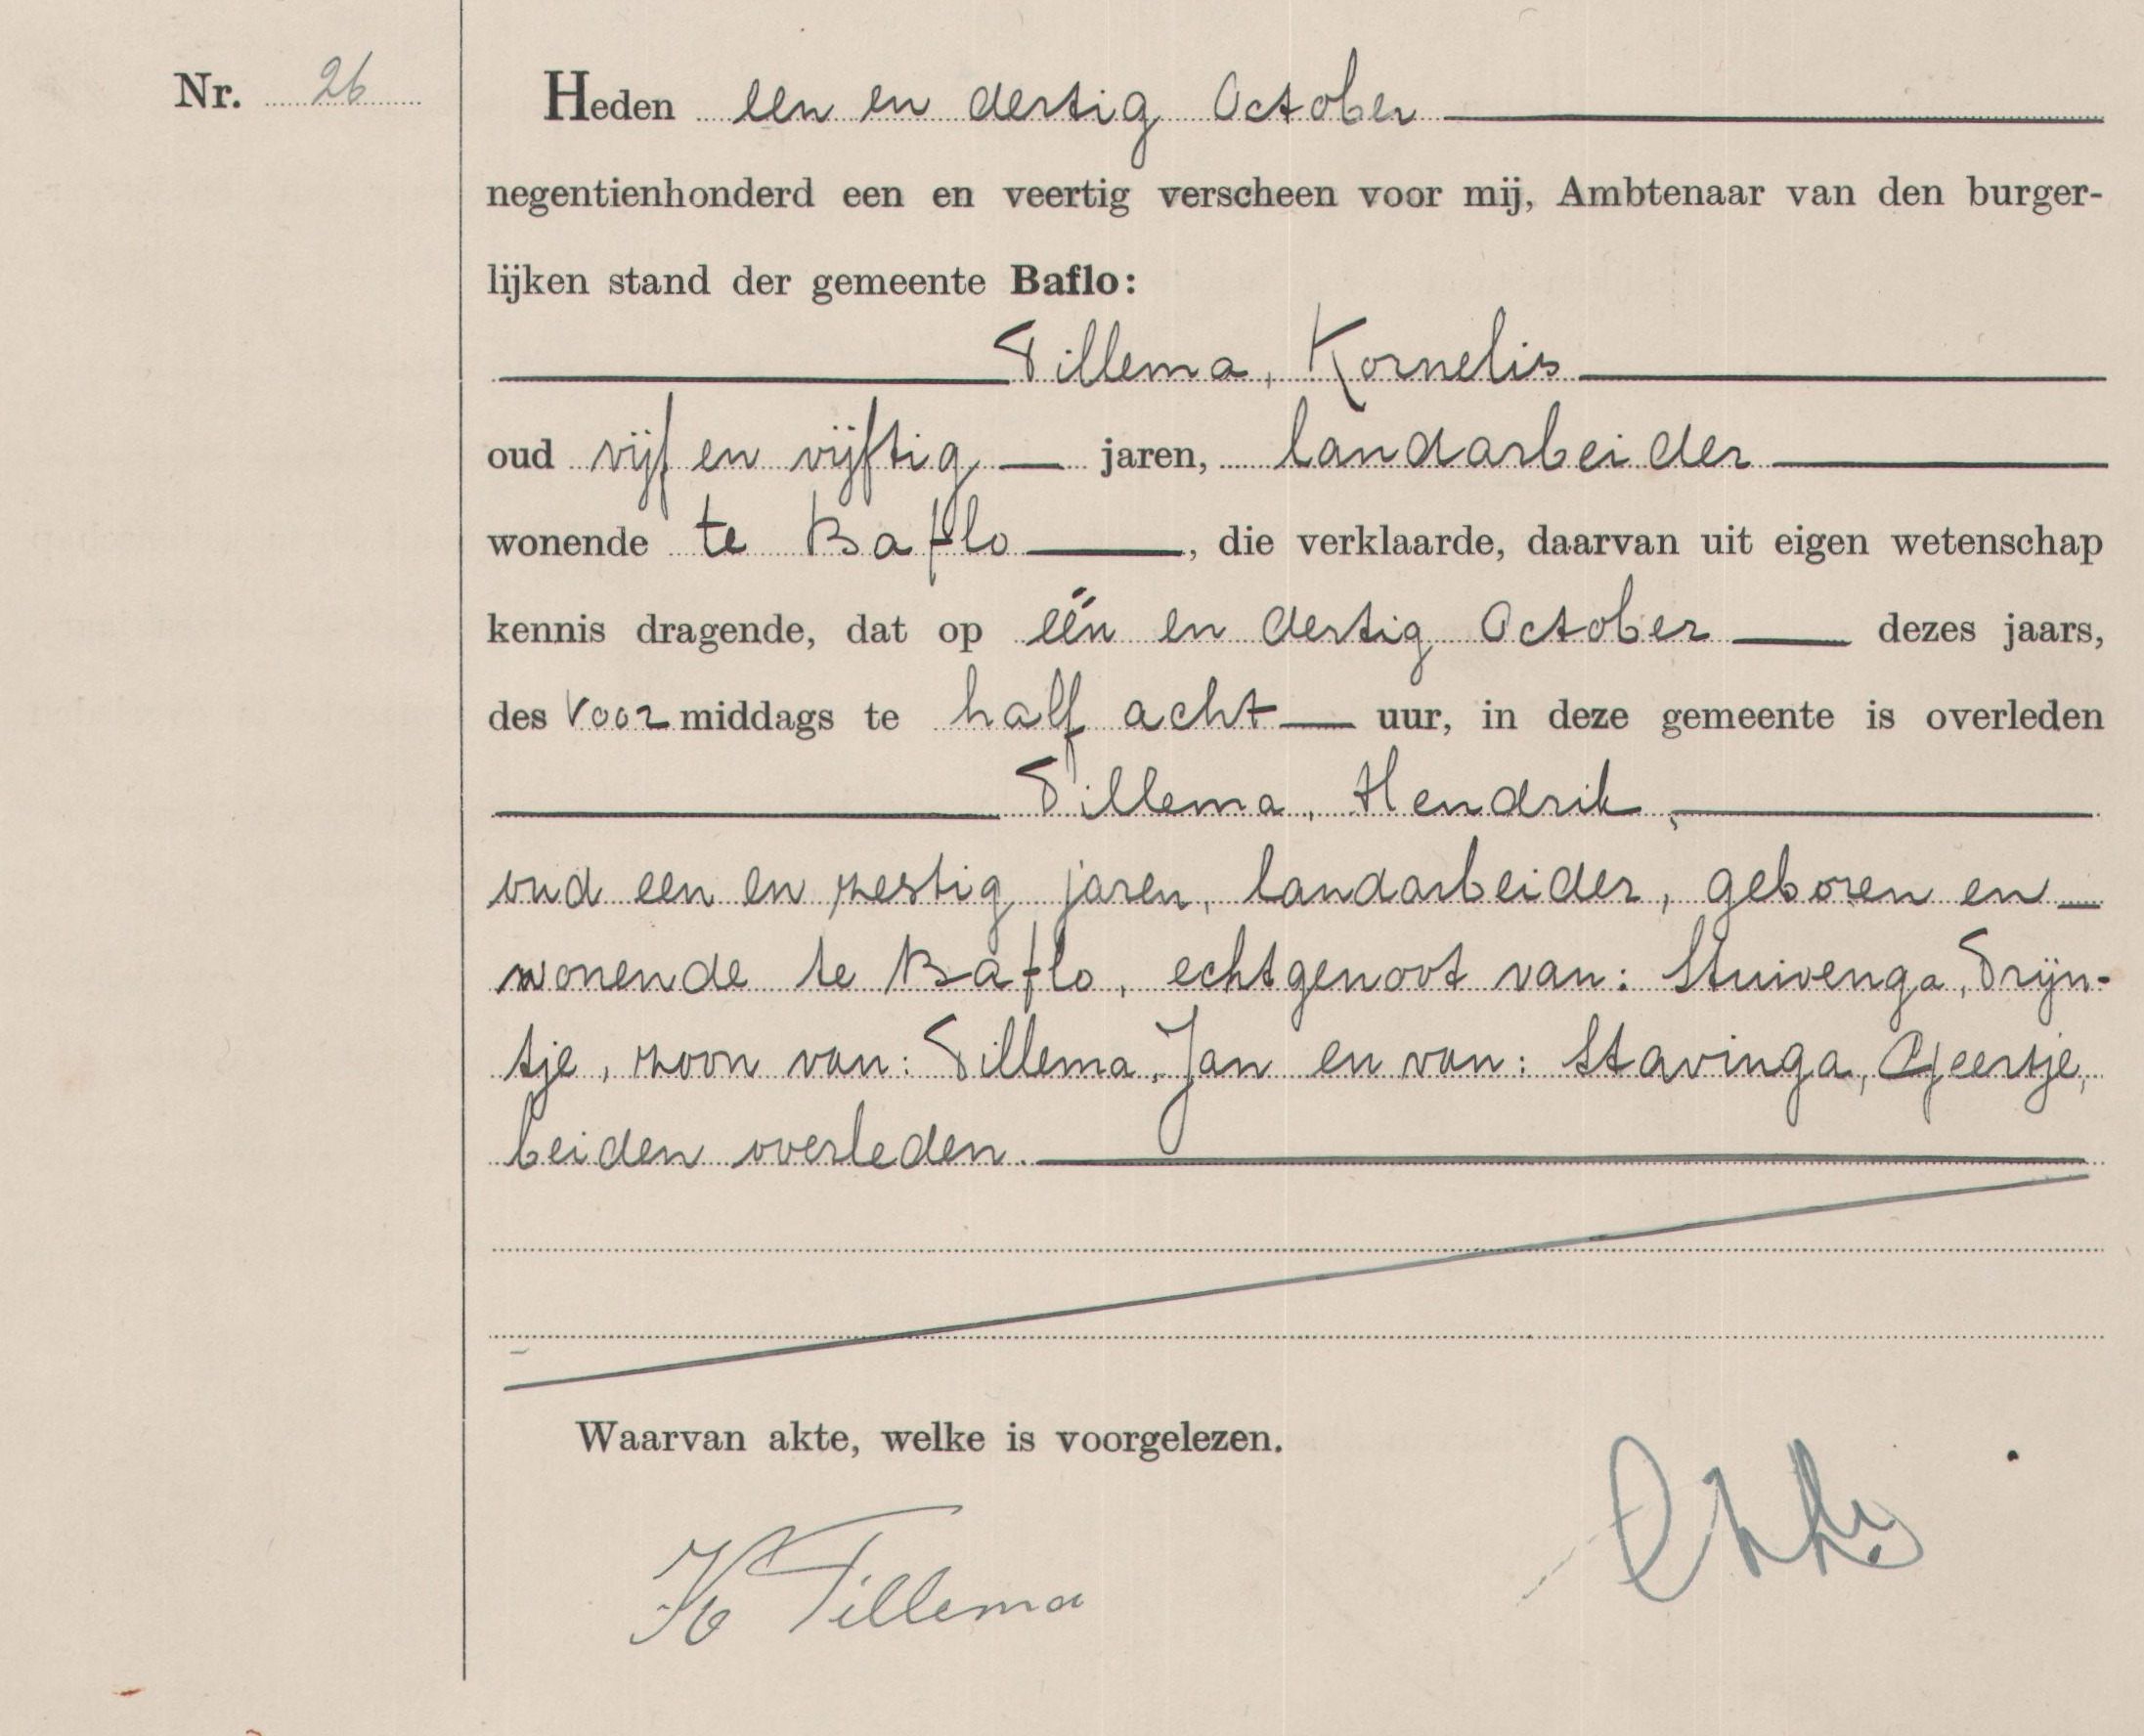 Nr. 26
Heden een en dertig October
negentienhonderd een en veertig verscheen voor mij, Ambtenaar van den burger-
lijken stand der gemeente Baflo:
Tillema, Kornelis
oud vijf en vijftig jaren, landarbeider
wonende te Baflo, die verklaarde, daarvan uit eigen wetenschap
kennis dragende, dat op één en dertig October dezes jaars,
des voormiddags te half acht uur, in deze gemeente is overleden
Tillema, Hendrik,
oud een en zestig jaren, landarbeider, geboren en
wonende te Baflo, echtgenoot van: Stuivenga, Trijn-
tje, zoon van: Tillema, Jan en van: Stavinga, Geertje,
beiden overleden.
Waarvan akte, welke is voorgelezen.
K Tillema